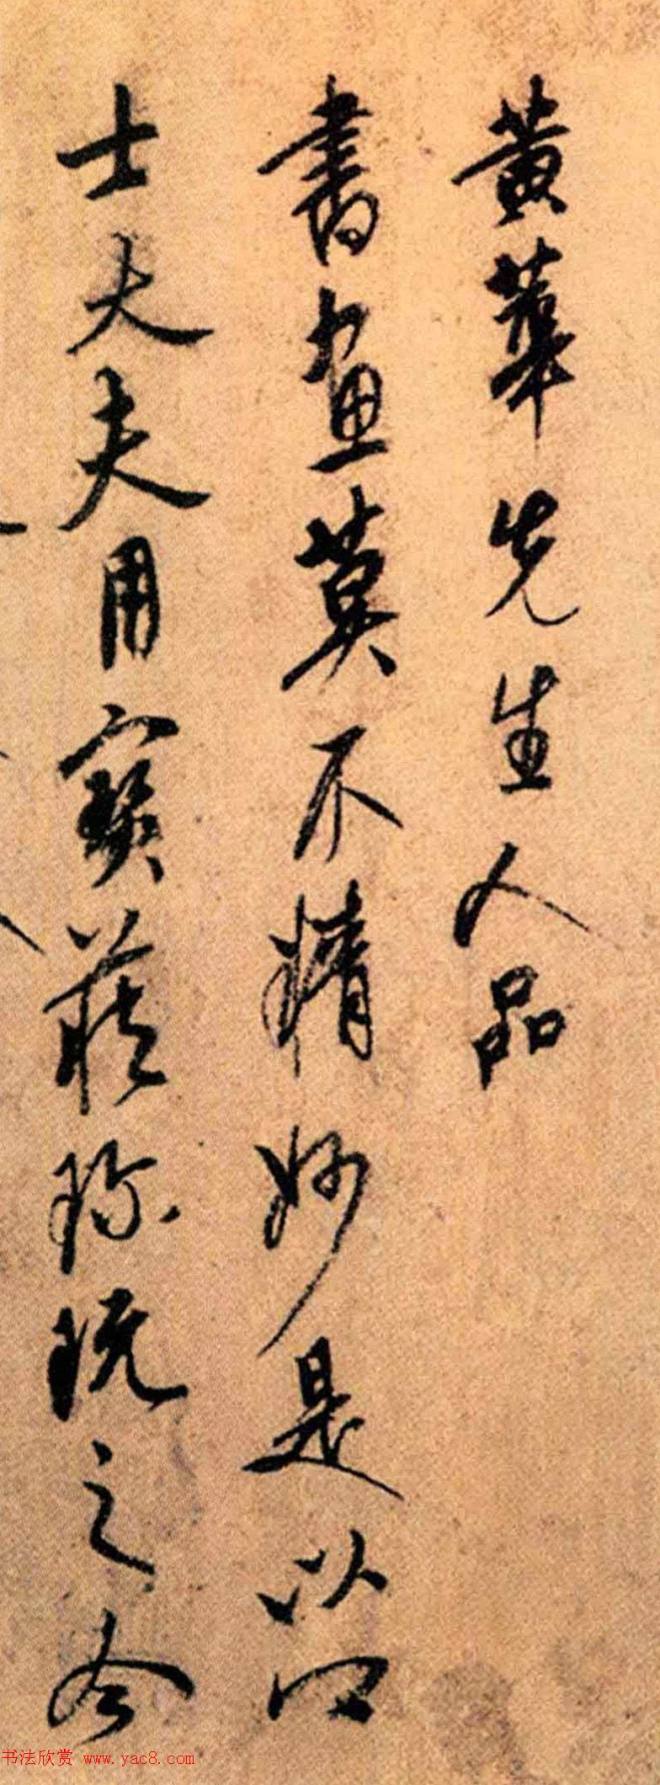 黄華先生人品
書画莫不精妙是以四
士大夫用寳藏珎玩之今
书法欣赏 www.yac8.com